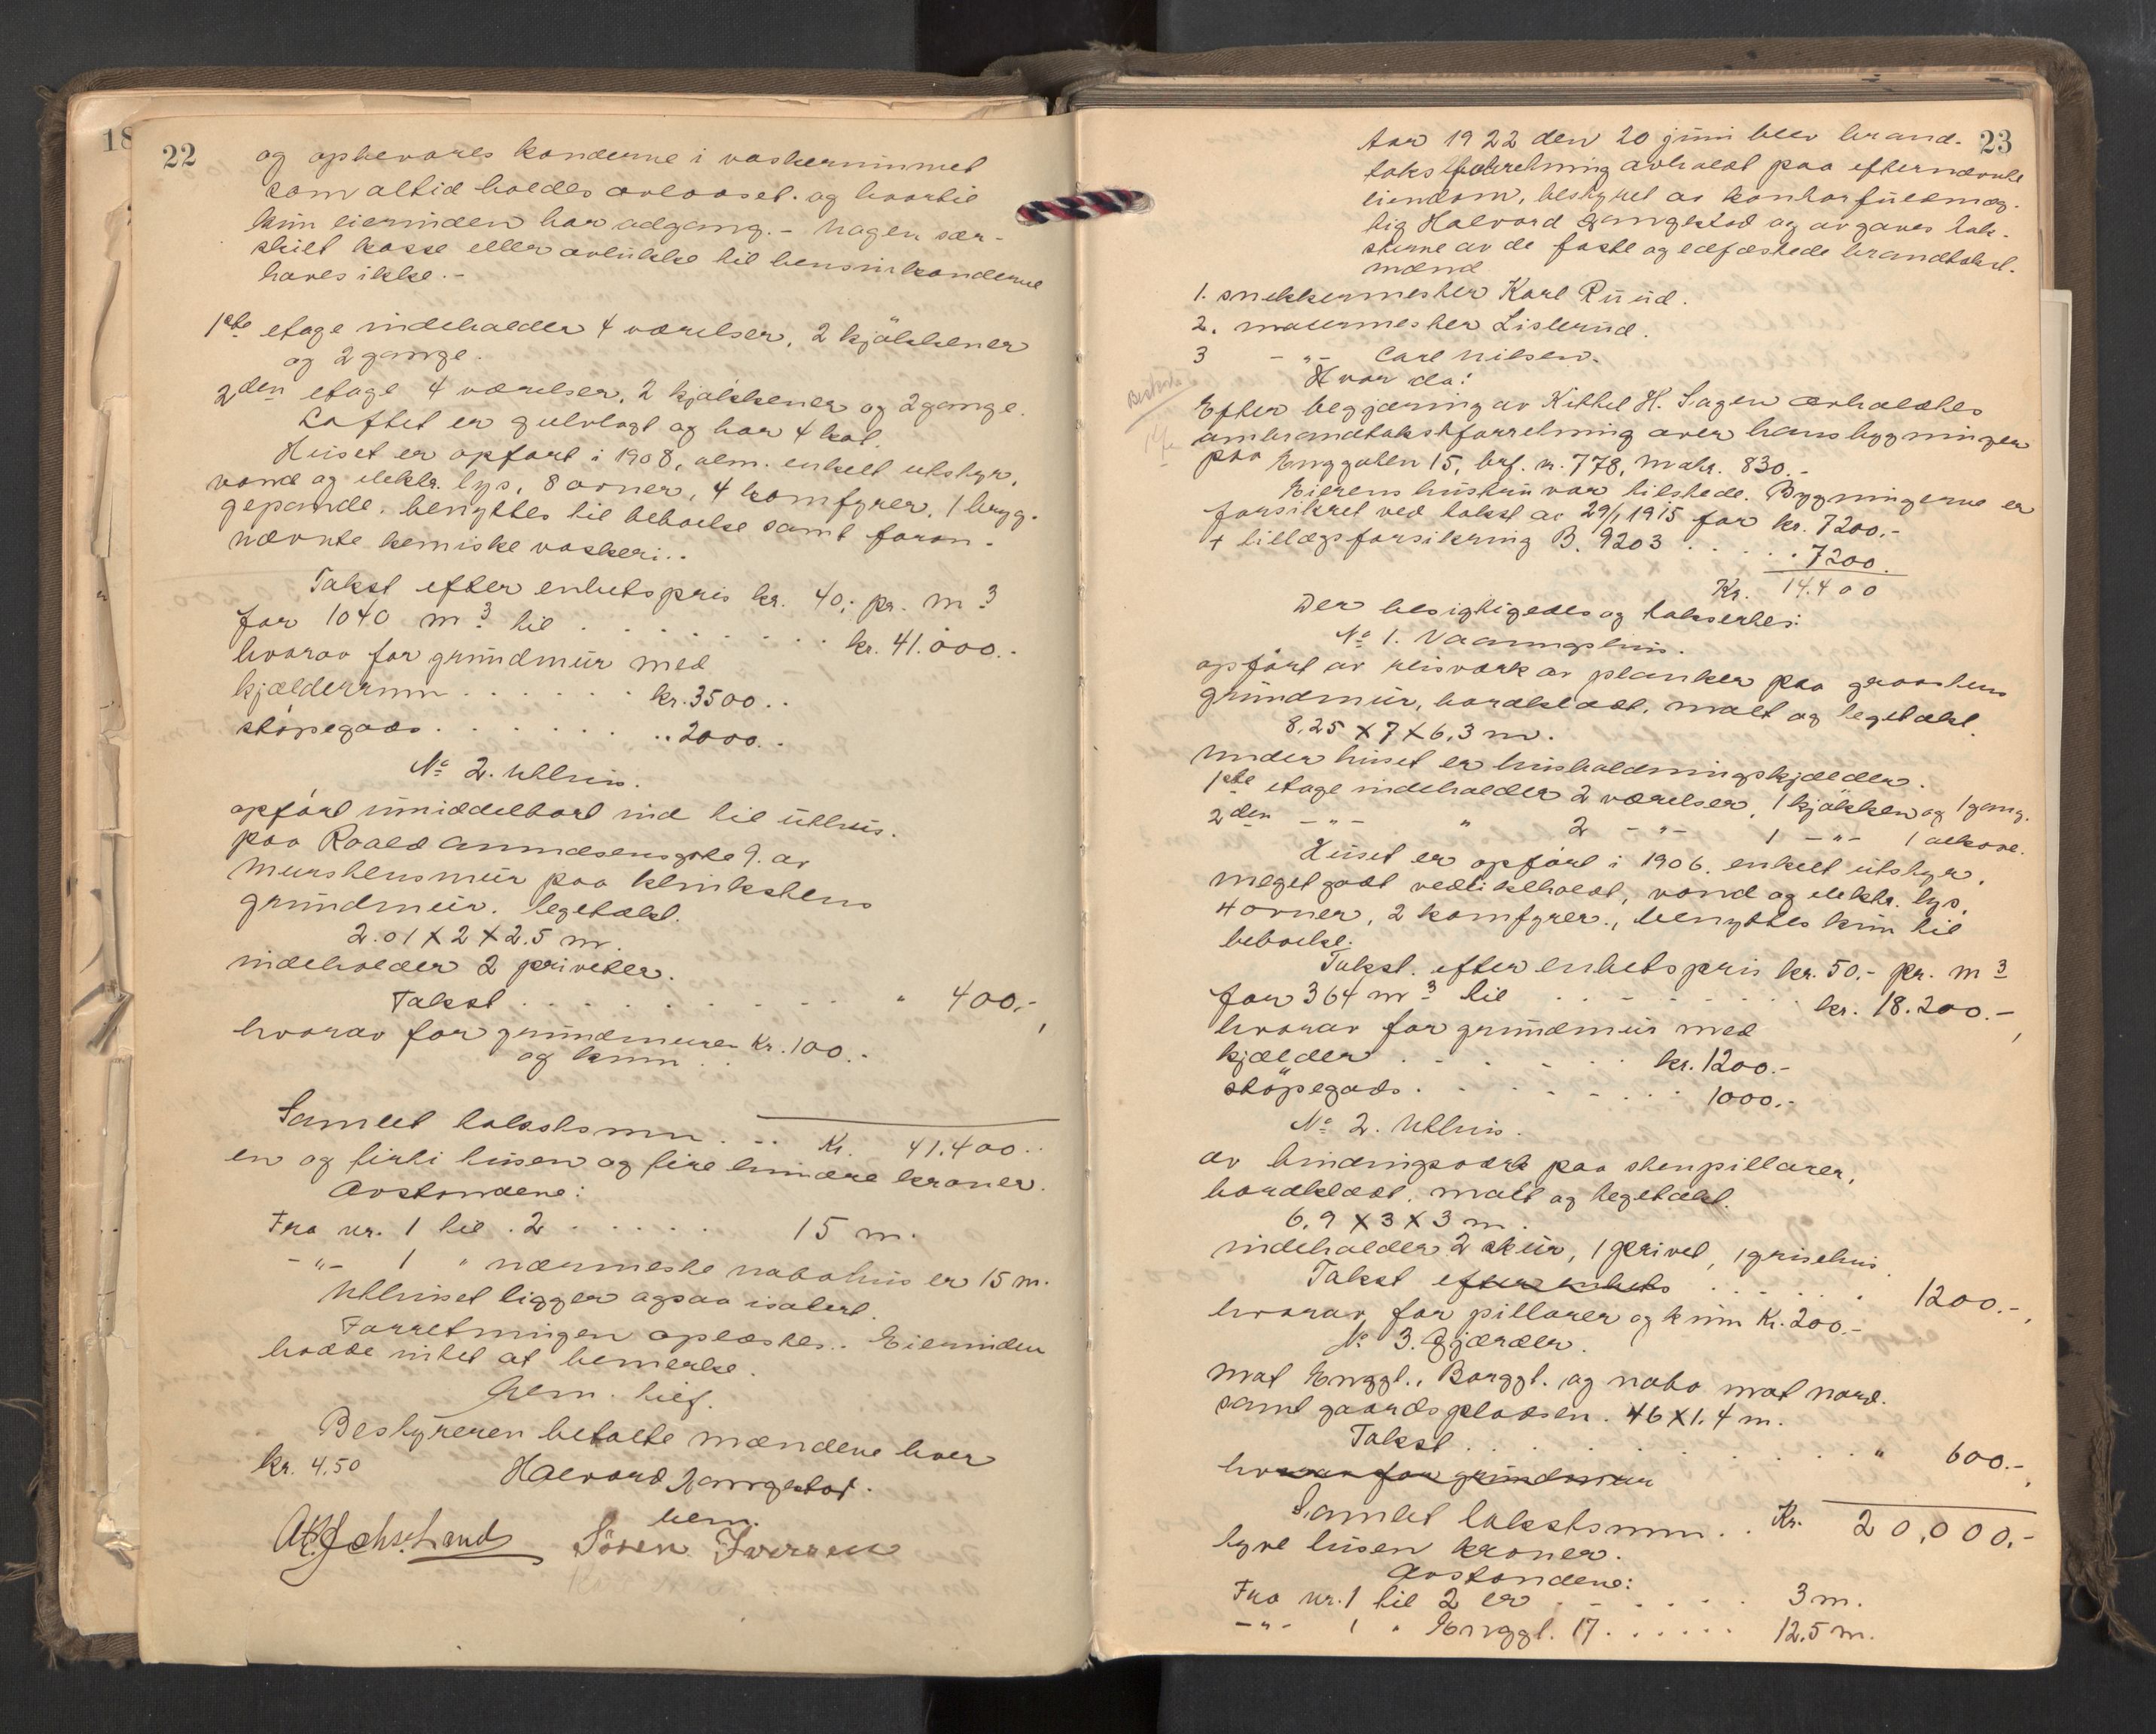 18
22
og opbevares kanderne i vaskerummet
som altid holdes avlaaset. og hvortil
kun eierinden har adgang. - Nagen sær-
skilt kasse eller avlukke til bensinkanderne
haves ikke. -
1ste etage indeholder 4 værelser, 2 kjøkkener
og 2 gange.
2den etage 4 værelser, 2 kjøkkener og 2 gange.
Loftet er gulvlagt og har 4 kot.
Huset er opført i 1908, alm. enkelt utstyr,
vand og elektr. lys, 8 ovner, 4 komfyrer, 1 bryg-
gepande, benyttes til beboelse samt foran-
nævnte kemiske vaskeri..
Takst efter enhetspris kr. 40,- pr. m3
for 1040 m3 til . . . . . . . . . kr. 41.000.-
hvorav for grundmur med
kjælderrum . . . . . . kr. 3500..
støpegods . . . . . . .. 2000..
No 2. Uthus.
opført umiddelbart ind til uthus.
paa Roald Amundsensgate 9. av
murstensmur paa klinkstens
grundmur. tegltækt.
2.01 X 2 X 2.5 m.
indeholder 2 priveter.
Takst . . . . . . . . . . " 400.-
hvorav for grundmuren Kr. 100.-
og kum . .
Samlet takstsum . .. Kr. 41.400..
en og firti tusen og fire hundre kroner.
Avstandene:
Fra nr. 1 til . 2 . . . . . . 15 m.
- " - 1 " nærmeste nabohus er 15 m.
Uthuset ligger ogsaa isolert.
Forretningen oplæstes.. Eierinden
hadde intet at bemerke.
Bestyreren betalte mændene hver
kr. 4,50 Halvord Langestad.
Søren Iversen
23
Aar 1922 den 20 juni blev brand-
takstforretning avholdt paa efternævnte
eiendom, bestyret av kontorfuldmæg-
tig Halvord Langestad og avgaves tak-
sterne av de faste og edfæstede brandtakst-
mænd
1. snekkermester Karl Ruud.
2. murermester Lislerud.
3 - " - Carl Nilsen.
Hvor da:
Efter begjæring av Kittel H. Sagen avholdtes
ombrandtakstforretning over hans bygninger
paa Enggaten 15, brf. n. 778, matr. 830.-
Eierens hustru var tilstede. Bygningerne er
forsikret ved takst av 29/1 1915 for kr. 7200.-
+ tillægsforsikring B. 9203 . . . . . 7200.
Kr. 14.400
Der besigtigedes og takseertes:
No 1. Vaaningshus.
opført av reisverk av planker paa graastens
grundmur, bordklædt, malt og tegltækt.
8,25 X 7 X 6,3 m.
under huset er husholdningskjælder.
1ste etage indeholder 2 værelser, 1 kjøkken og 1 gang.
2den - " - " 2 - " - 1 - " - 1 alkove.
Huset er opført i 1906, enkelt utstyr,
meget godt vedlikeholdt, vand og elektr. lys,
4 ovner, 2 komfyrer., benyttes kun til
beboelse.
Takst. efter enhetspris kr. 50.- pr. m3
for 364 m3 til . . . . . . . . kr. 18.200.-
hvorav for grundmur med
kjælder . . . . . . kr. 1200.-
støpegods . . . . . . . 1000.-
No 2. Uthus.
av bindingsverk paa stenpillarer,
bordklædt, malt og tegltækt.
6,9 X 3 X 3 m.
indeholder 2 skur, 1 privet, 1 grisehus.
Takst efter enhets . . . . . . 1200.-
hvorav for pillarer og kum Kr. 200.-
No 3. Gjærder.
mot Enggt., Borggt. og nabo mot nord.
samt gaardspladsen. 46 X 1.4 m.
Takst . . . . . . . . . . " 600.-
hvorav for grundmur
Samlet takstsum . . Kr. 20,000.-
tyve tusen kroner.
Avstandene:
Fra nr. 1 til 2 er . . . . . . 3 m.
- " - 1 " Enggt. 17 . . . . . . 12.5 m.